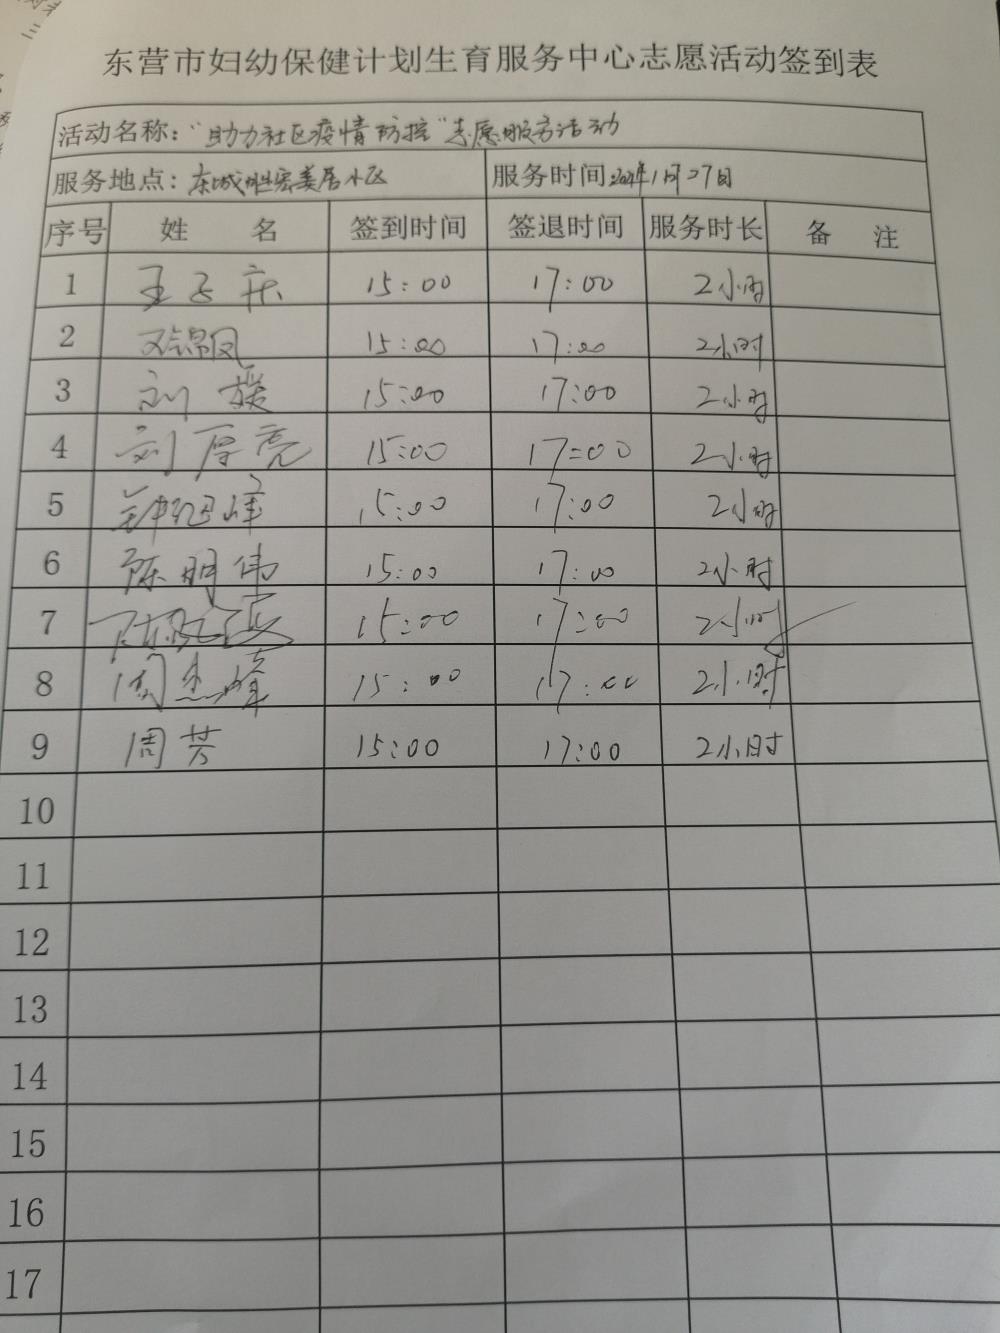 东营市妇幼保健计划生育服务中心志愿活动签到表
活动名称："助力社区疫情防控"志愿服务活动
服务地点：东城胜宏美居小区 服务时间：1月27日
序号 姓 名 签到时间 签退时间 服务时长 备 注
1 王子庆 15:00 17:00 2小时
2 邓锦凤 15:00 17:00 2小时
3 刘 15:00 17:00 2小时
4 刘厚亮 15:00 17:00 2小时
5 峰 15:00 17:00 2小时
6 陈明伟 15:00 17:00 2小时
7 15:00 17:00 2小时
8 周 峰 15:00 17:00 2小时
9 周芳 15:00 17:00 2小时
10
11
12
13
14
15
16
17